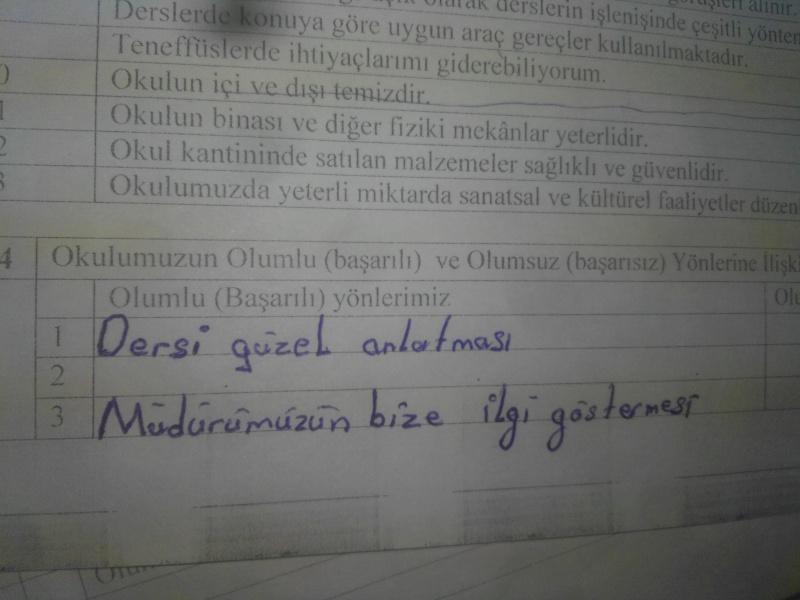 derslerin işlenişinde çeşitli
Derslerde konuya göre uygun araç gereçler kullanılmaktadır.
Teneffüslerde ihtiyaçlarımı giderebiliyorum.
0 Okulun içi ve dışı temizdir.
1 Okulun binası ve diğer fiziki mekânlar yeterlidir.
2 Okul kantininde satılan malzemeler sağlıklı ve güvenlidir.
3 Okulumuzda yeterli miktarda sanatsal ve kültürel faaliyetler düzen
4 Okulumuzun Olumlu (başarılı) ve Olumsuz (başarısız) Yönlerine İlişki
Olumlu (Başarılı) yönlerimiz Olu
1 Dersi güzel anlatması
2
3 Müdürümüzün bize ilgi göstermesi